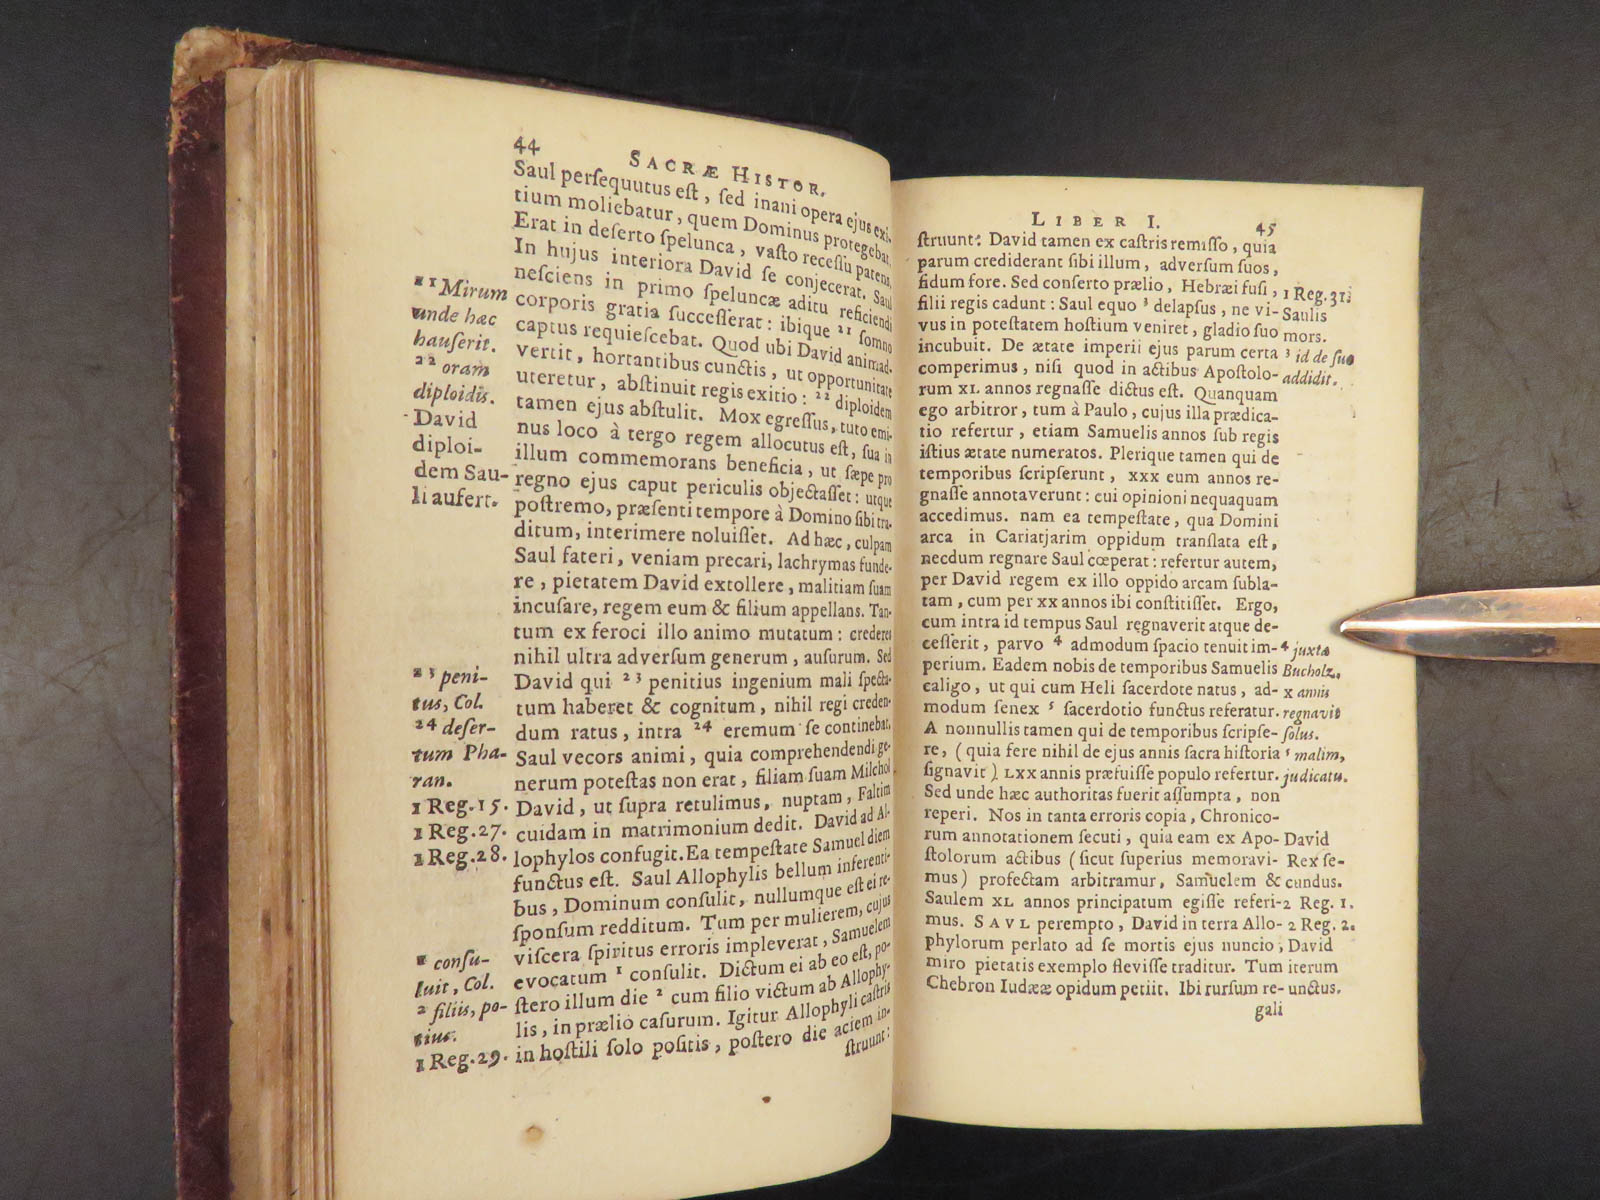 44
SACRÆ HISTOR.
Saul persequutus est, sed inani opera ejus exi-
tium moliebatur, quem Dominus protegebat.
Erat in deserto spelunca, vasto recessu patens,
In hujus interiora David se conjecerat. Saul
nesciens in primo speluncæ aditu reficiendi
corporis gratia successerat: ibique 21 somno
captus requiescebat. Quod ubi David animad-
vertit, hortantibus cunctis, ut opportunitate
uteretur, abstinuit regis exitio: 22 diploidem
tamen ejus abstulit. Mox egressus, tuto emi-
nus loco à tergo regem allocutus est, sua in
illum commemorans beneficia, ut sæpe pro
regno ejus caput periculis objectasset: utque
postremo, præsenti tempore à Domino sibi tra-
ditum, interimere noluisset. Ad hæc, culpam
Saul fateri, veniam precari, lachrymas funde-
re, pietatem David extollere, malitiam suam
incusare, regem eum & filium appellans. Tan-
tum ex feroci illo animo mutatum: crederes
nihil ultra adversum generum, ausurum. Sed
David qui 23 penitius ingenium mali specta-
tum haberet & cognitum, nihil regi creden-
dum ratus, intra 24 eremum se continebat.
Saul vecors animi, quia comprehendendi ge-
nerum potestas non erat, filiam suam Milchol
David, ut supra retulimus, nuptam, Faltim
cuidam in matrimonium dedit. David ad Al-
lophylos confugit. Ea tempestate Samuel diem
functus est. Saul Allophylis bellum inferenti-
bus, Dominum consulit, nullumque est ei re-
sponsum redditum. Tum per mulierem, cujus
viscera spiritus erroris impleverat, Samuelem
evocatum 1 consulit. Dictum ei ab eo est, po-
stero illum die 2 cum filio victum ab Allophy-
lis, in prælio casurum. Igitur Allophyli castris
in hostili solo positis, postero die aciem in-
struunt:
21 Mirum
unde hæc
hauserit.
22 oram
diploidis.
David
diploi-
dem Sau-
li aufert.
23 peni-
tus, Col.
24 deser-
tum Pha-
ran.
1 Reg. 15.
1 Reg. 27.
1 Reg. 28.
1 consu-
luit, Col.
2 filiis, po-
tius.
1 Reg. 29.
LIBER I.
45
struunt: David tamen ex castris remisso, quia
parum crediderant sibi illum, adversum suos,
fidum fore. Sed conserto prælio, Hebræi fusi,
filii regis cadunt: Saul equo 3 delapsus, ne vi-
vus in potestatem hostium veniret, gladio suo
incubuit. De ætate imperii ejus parum certa
comperimus, nisi quod in actibus Apostolo-
rum XL annos regnasse dictus est. Quanquam
ego arbitror, tum à Paulo, cujus illa prædica-
tio refertur, etiam Samuelis annos sub regis
istius ætate numeratos. Plerique tamen qui de
temporibus scripserunt, XXX eum annos re-
gnasse annotaverunt: cui opinioni nequaquam
accedimus. nam ea tempestate, qua Domini
arca in Cariatjarim oppidum translata est,
necdum regnare Saul cœperat: refertur autem,
per David regem ex illo oppido arcam subla-
tam, cum per XX annos ibi constitisset. Ergo,
cum intra id tempus Saul regnaverit atque de-
cesserit, parvo 4 admodum spacio tenuit im-
perium. Eadem nobis de temporibus Samuelis
caligo, ut qui cum Heli sacerdote natus, ad-
modum senex 5 sacerdotio functus referatur.
A nonnullis tamen qui de temporibus scripse-
re, (quia fere nihil de ejus annis sacra historia
signavit) LXX annis præfuisse populo refertur.
Sed unde hæc authoritas fuerit assumpta, non
reperi. Nos in tanta erroris copia, Chronico-
rum annotationem secuti, quia eam ex Apo-
stolorum actibus (sicut superius memoravi-
mus) profectam arbitramur, Samuelem &
Saulem XL annos principatum egisse referi-
mus. SAVL perempto, David in terra Allo-
phylorum perlato ad se mortis ejus nuncio, David
miro pietatis exemplo flevisse traditur. Tum iterum
Chebron Iudææ opidum petiit. Ibi rursum re-
gali
1 Reg. 31.
Saulis
mors.
3 id de suo
addidit.
4 juxta
Bucholz.
x annis
regnavit
solus.
5 malim,
judicatu.
David
Rex se-
cundus.
2 Reg. 1.
2 Reg. 2.
unctus.